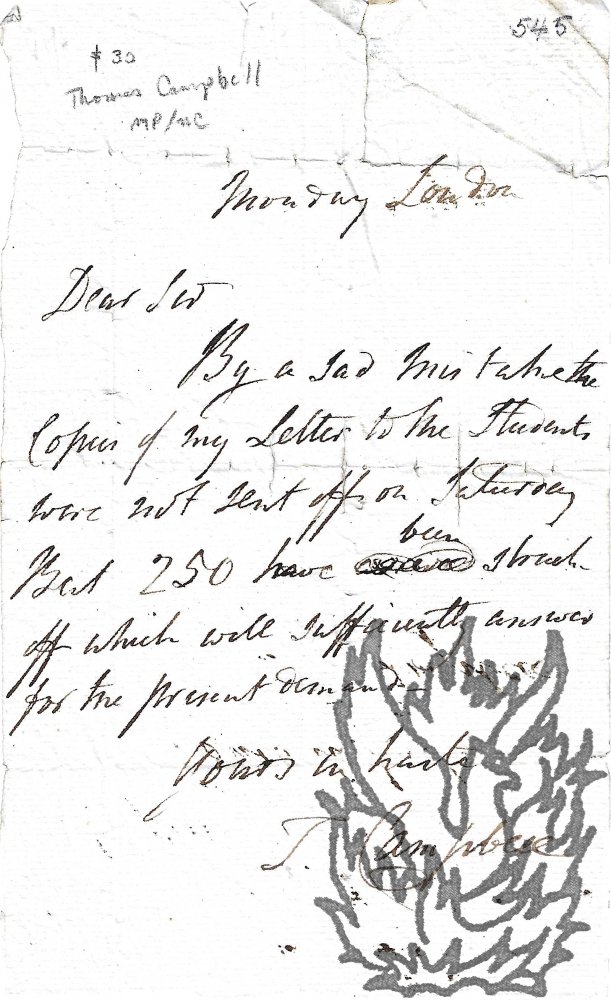 545
$ 30
Thomas Campbell
MP/NC
Monday London
Dear Sir
By a sad mistake the
Copies of my Letter to the Students
were not sent off on Saturday
been
But 250 have struck
off which will sufficiently answer
for the present demand
Yours in haste
T. Campbell